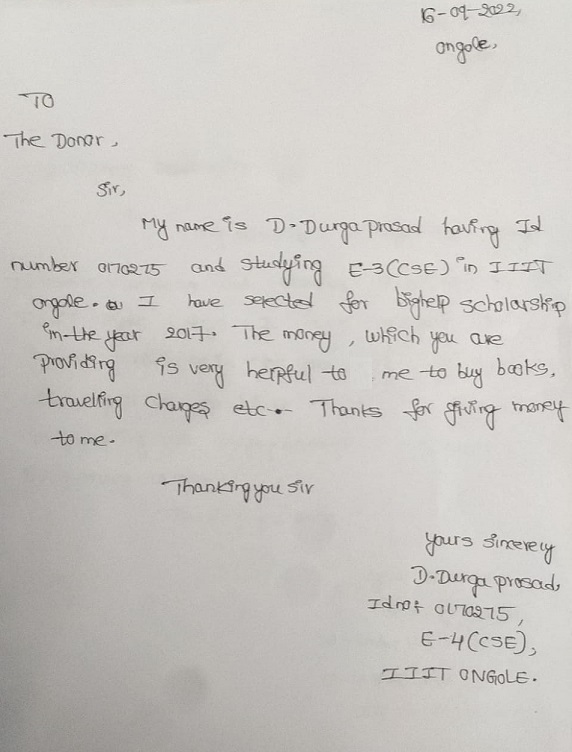 16-09-2022,
ongole,
TO
The Donor,
Sir,
My name is D.Durga prasad having Id
number 0170275 and studying E-3(CSE) in IIIT
ongole. I have selected for bighelp scholarship
in the year 2017. The money, which you are
providing is very helpful to me to buy books,
travelling charges etc. Thanks for giving money
to me.
Thanking you sir
yours sincerely
D.Durga prasad,
Idno: 0170275,
E-4(CSE),
IIIT ONGOLE.